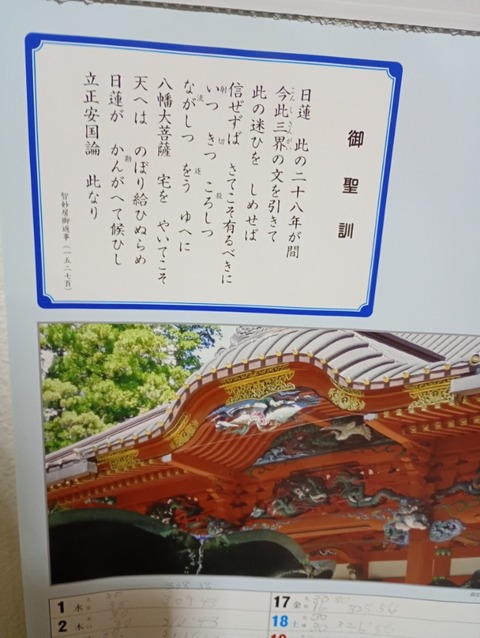 御聖訓
日蓮　此の二十八年が間
今此三界の文を引きて
此の迷ひを　しめせば
信ぜずば　さてこそ有るべきに
いつ　きつ　ころしつ
ながしつ　をう　ゆへに
八幡大菩薩　宅を　やいてこそ
天へは　のぼり給ひぬらめ
日蓮が　かんがへて候ひし
立正安国論　此なり
智妙房御返事（一五二七頁）
1 水
2 木
17 金
18 土